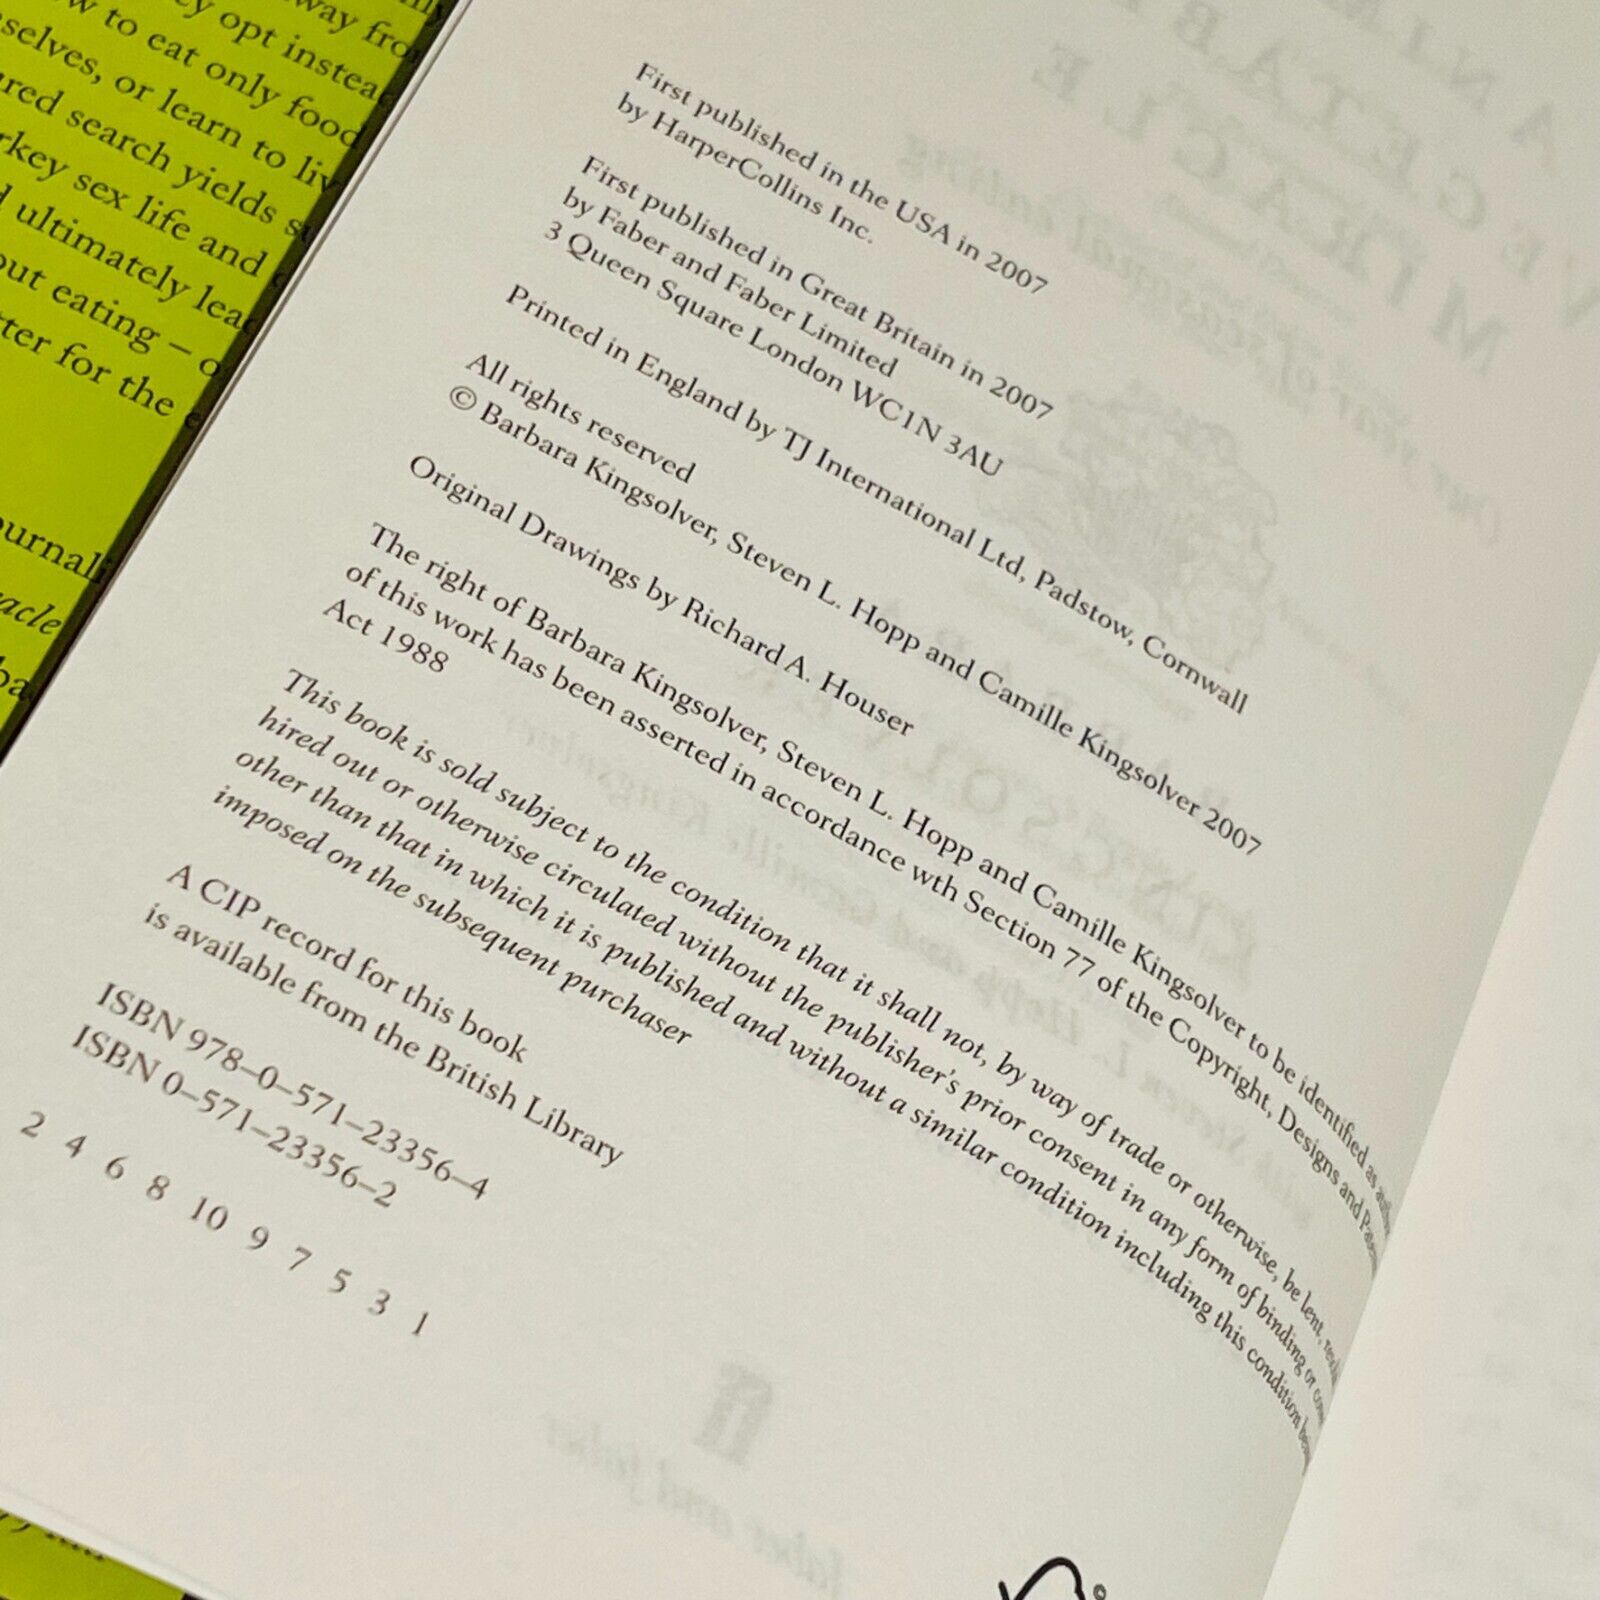 way fro
ey opt instead
ow to eat only food
selves, or learn to liv
ured search yields su
rkey sex life and
d ultimately lead
out eating – o
tter for the e
ournali
racle
ba
First published in the USA in 2007
by HarperCollins Inc.
First published in Great Britain in 2007
by Faber and Faber Limited
3 Queen Square London WC1N 3AU
Printed in England by TJ International Ltd, Padstow, Cornwall
All rights reserved
© Barbara Kingsolver, Steven L. Hopp and Camille Kingsolver 2007
Original Drawings by Richard A. Houser
The right of Barbara Kingsolver, Steven L. Hopp and Camille Kingsolver to be identified as
of this work has been asserted in accordance wth Section 77 of the Copyright, Designs and
Act 1988
This book is sold subject to the condition that it shall not, by way of trade or otherwise, be lent,
hired out or otherwise circulated without the publisher's prior consent in any form of binding or
other than that in which it is published and without a similar condition including this condition
imposed on the subsequent purchaser
A CIP record for this book
is available from the British Library
ISBN 978–0–571–23356–4
ISBN 0–571–23356–2
2 4 6 8 10 9 7 5 3 1